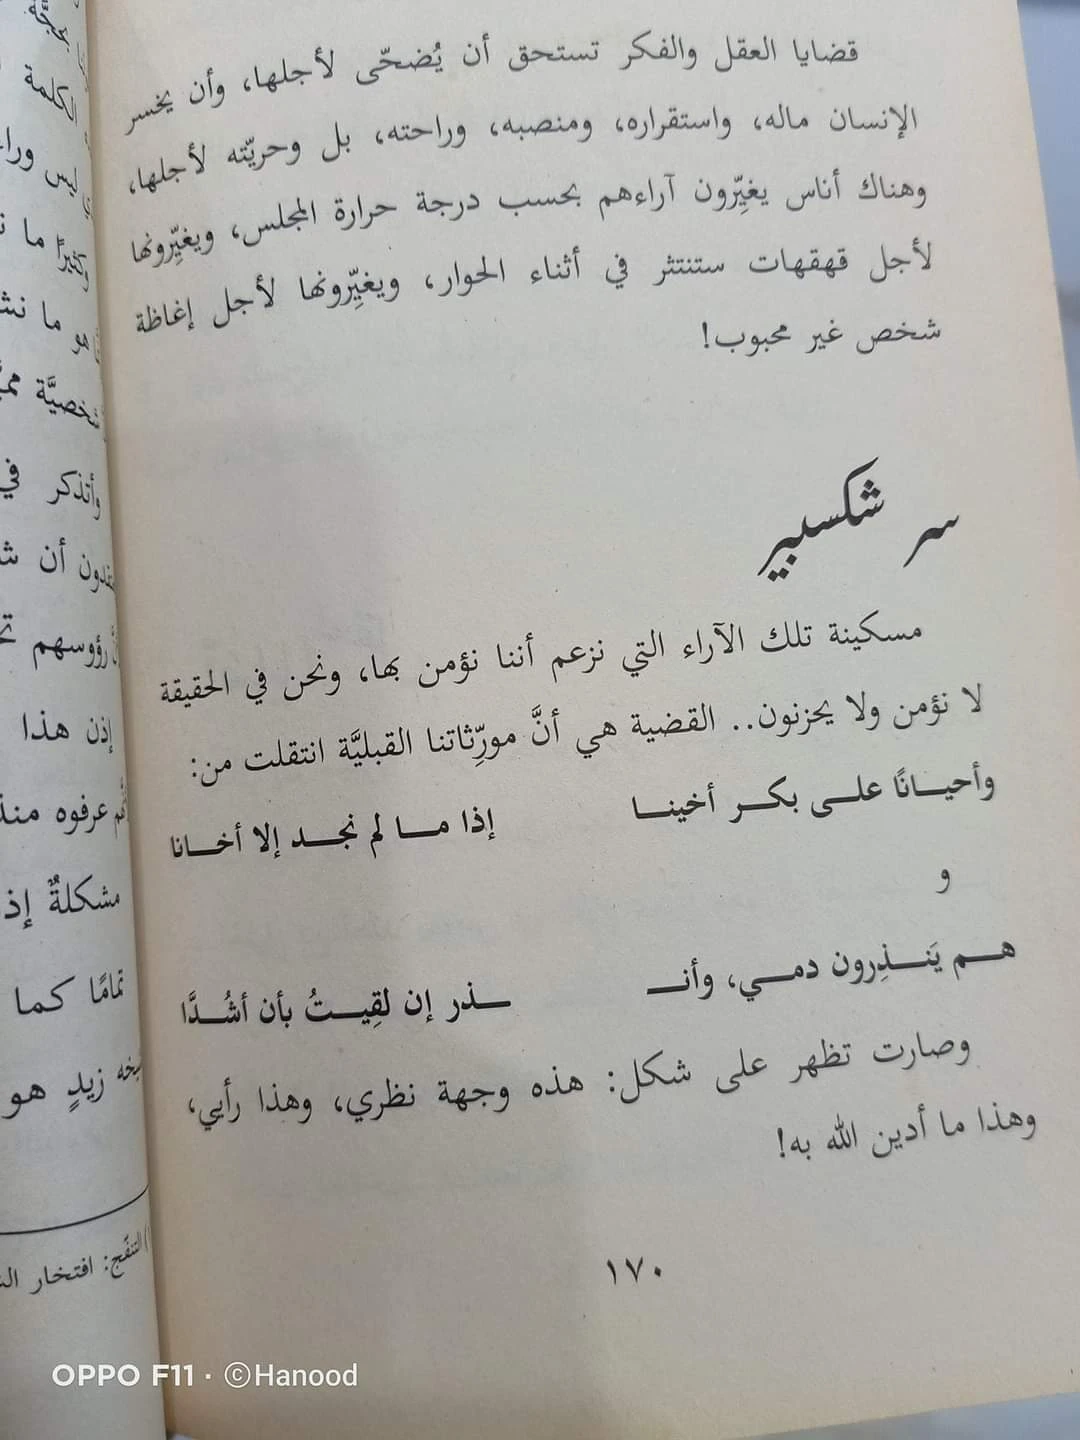 قضايا العقل والفكر تستحق أن يُضحّى لأجلها، وأن يخسر
الإنسان ماله، واستقراره، ومنصبه، وراحته، بل وحريّته لأجلها،
وهناك أناس يغيِّرون آراءهم بحسب درجة حرارة المجلس، ويغيِّرونها
لأجل قهقهات ستنتثر في أثناء الحوار، ويغيِّرونها لأجل إغاظة
شخص غير محبوب!
سر شكسبير
مسكينة تلك الآراء التي نزعم أننا نؤمن بها، ونحن في الحقيقة
لا نؤمن ولا يحزنون.. القضية هي أنَّ مورِّثاتنا القبليَّة انتقلت من:
وأحيـــانًا علـــى بكـــر أخينـــا إذا مـــا لم نجـــد إلا أخـــانا
و
هـــم يَنـــذِرون دمـــي، وأنـــ ـــذر إن لقِيـــتُ بأن أشُـــدَّا
وصارت تظهر على شكل: هذه وجهة نظري، وهذا رأيي،
وهذا ما أدين الله به!
١٧٠
الكلمة
ليس
وكثيرًا ما
هو ما
وأتذكر في
أن
رؤوسهم
إذن هذا
عرفوه
مشكلةٌ
تمامًا كما
زيدٍ هو
التنفّج: افتخار
OPPO F11 · ©Hanood